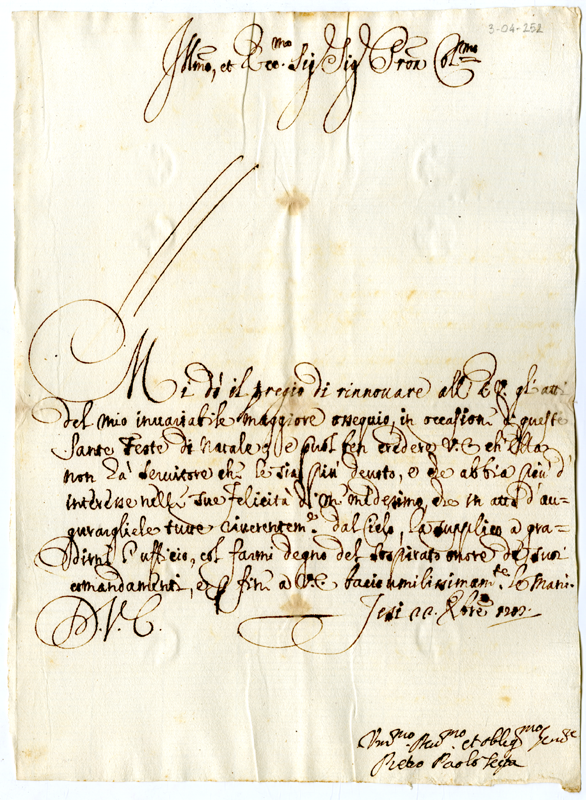 3-04-252
Illmo, et Ecc.mo Sig Sig Pron Col.mo
Mi dò il pregio di rinnovare all' EV gl' atti
del mio invariabile maggiore ossequio, in occasione di queste
Sante Feste di Natale, e può ben credere V.E. ch' Ella
non hà servitore che le sia più devoto, e che abbia più d'
interesse nelle sue felicità di me medesimo, che in atto d' au-
gurargliele tutte riverentem.e dal Cielo, la supplico à gra-
dirne l' ufficio, col farmi degno del sospirato onore de suoi
comandamenti, e fine à V.E. bacio umilissimam.te le mani.
D. V. E.
Jesi Xbre
Um.mo Dev.mo et oblig.mo
Pietro Paolo